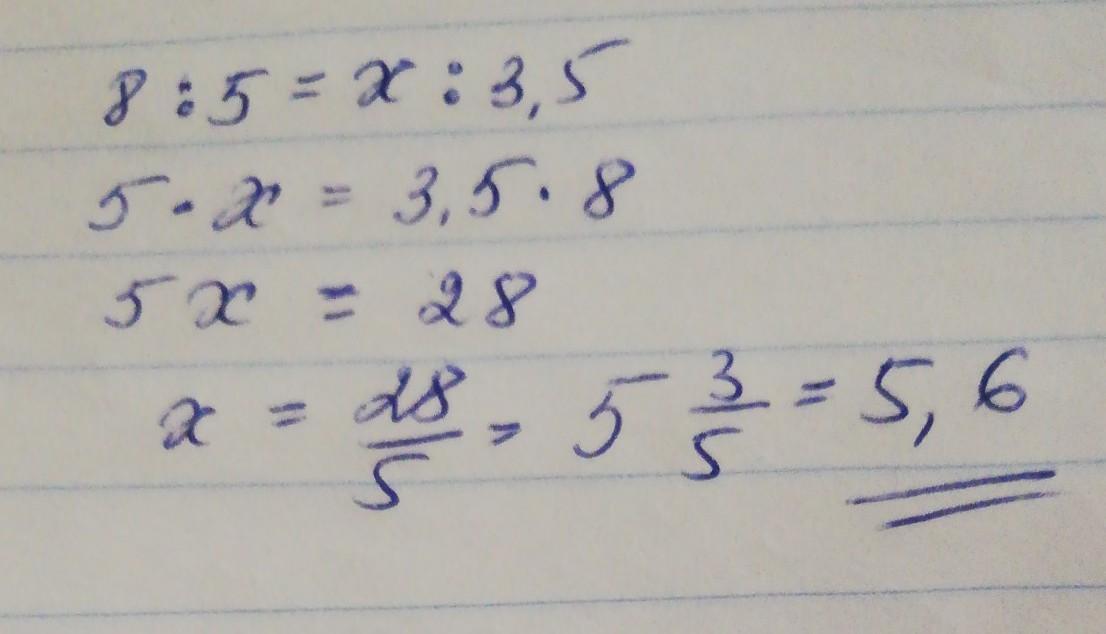 8 : 5 = x : 3,5
5 · x = 3,5 · 8
5x = 28
x = 28/5 = 5 3/5 = 5,6